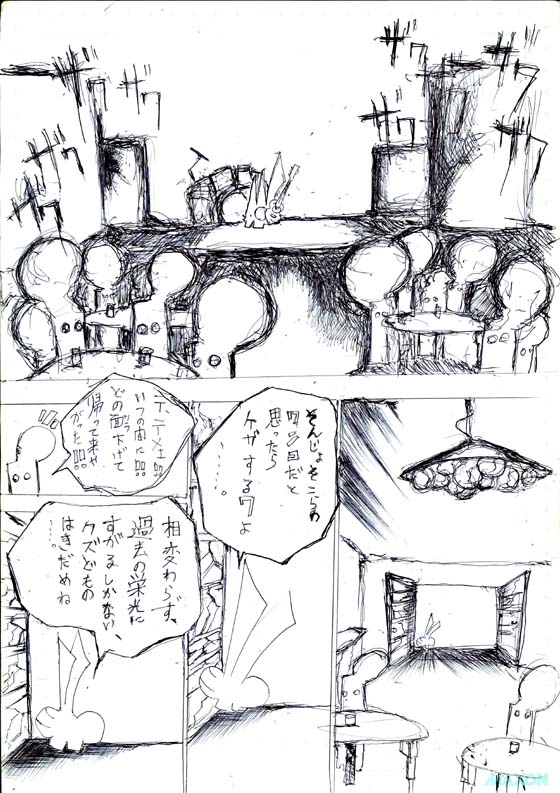 ザワ
ザワ
ザワ
ザワ
ザワ
ザワ
ザワ
ザワ
そんじょそこらの
だと
思ったら
ケガするワよ
……。
テ、テメエ!!
いつの間に!!
どの面下げて
帰って来や
がった!!!
相変わらず、
過去の栄光に
すがるしかない、
クズどもの
はきだめね
……。